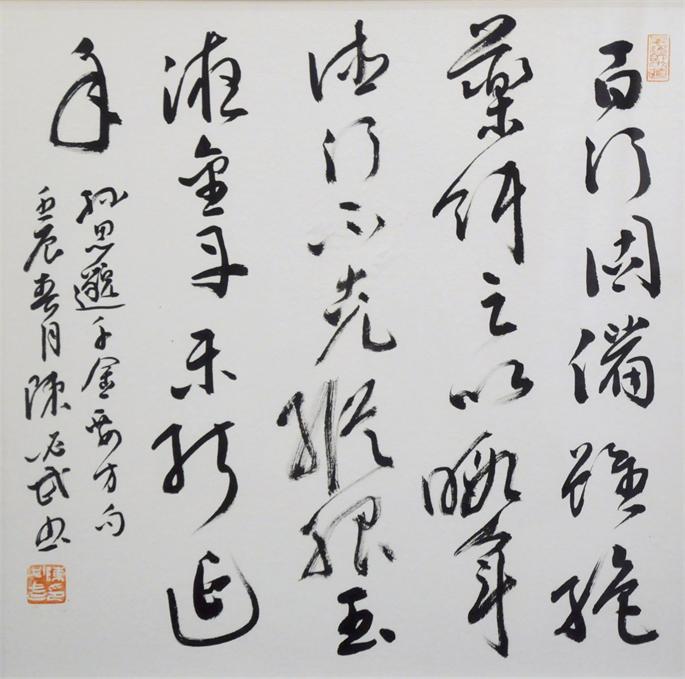 百行周備雖絕
藥餌足以暇年
德行不克縱服玉
液金丹未能延
年
孫思邈千金要方句
壬辰春月陳武書